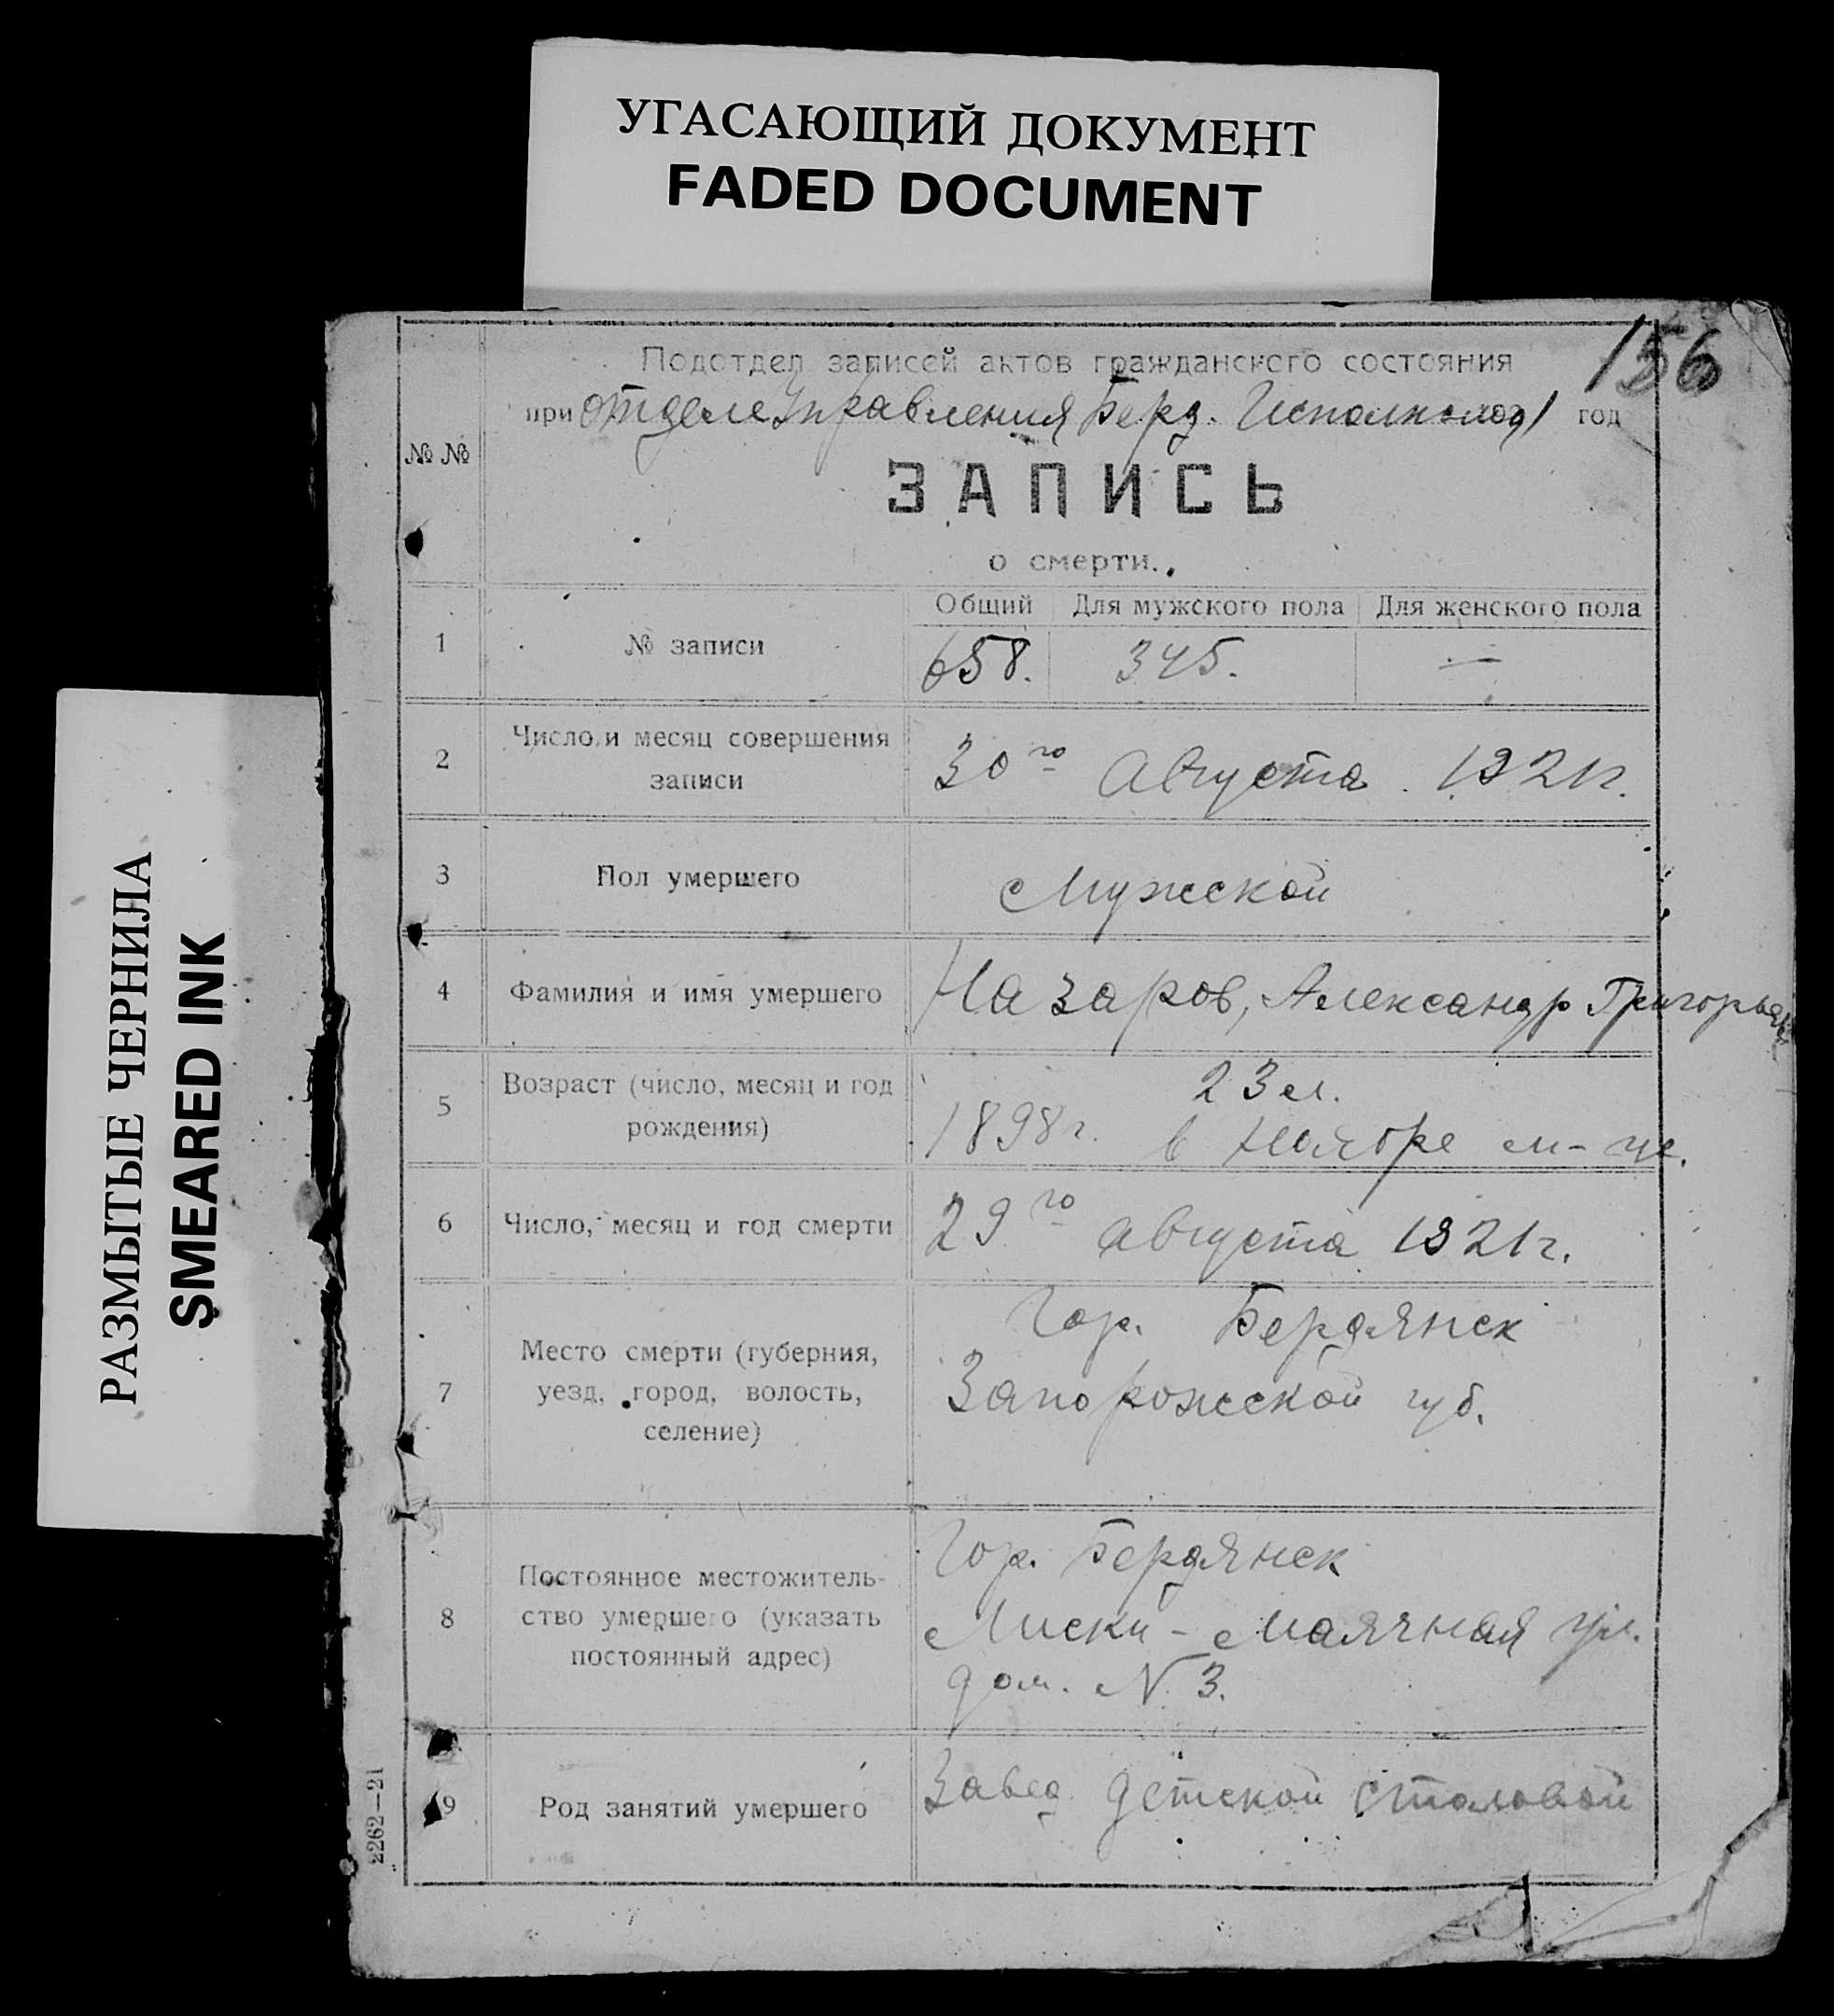 УГАСАЮЩИЙ ДОКУМЕНТ
FADED DOCUMENT
РАЗМЫТЫЕ ЧЕРНИЛА
SMEARED INK
156
Подотдел записей актов гражданского состояния
при отделе Управления Берд. год
№ №
ЗАПИСЬ
о смерти.
Общий Для мужского пола Для женского пола
1 № записи 658. 345. —
2 Число и месяц совершения
записи
30го Августа 1921г.
3 Пол умершего Мужской
4 Фамилия и имя умершего Назаров, Александр
5 Возраст (число, месяц и год
рождения)
23 л.
1898г. в Ноябре м-це.
6 Число, месяц и год смерти 29го Августа 1921г.
7 Место смерти (губерния,
уезд, город, волость,
селение)
Гор. Бердянск
Запорожской губ.
8 Постоянное местожитель-
ство умершего (указать
постоянный адрес)
Гор. Бердянск
Лиски - Маячная ул.
дом. N 3.
9 Род занятий умершего Завед. детской столовой
2262—21